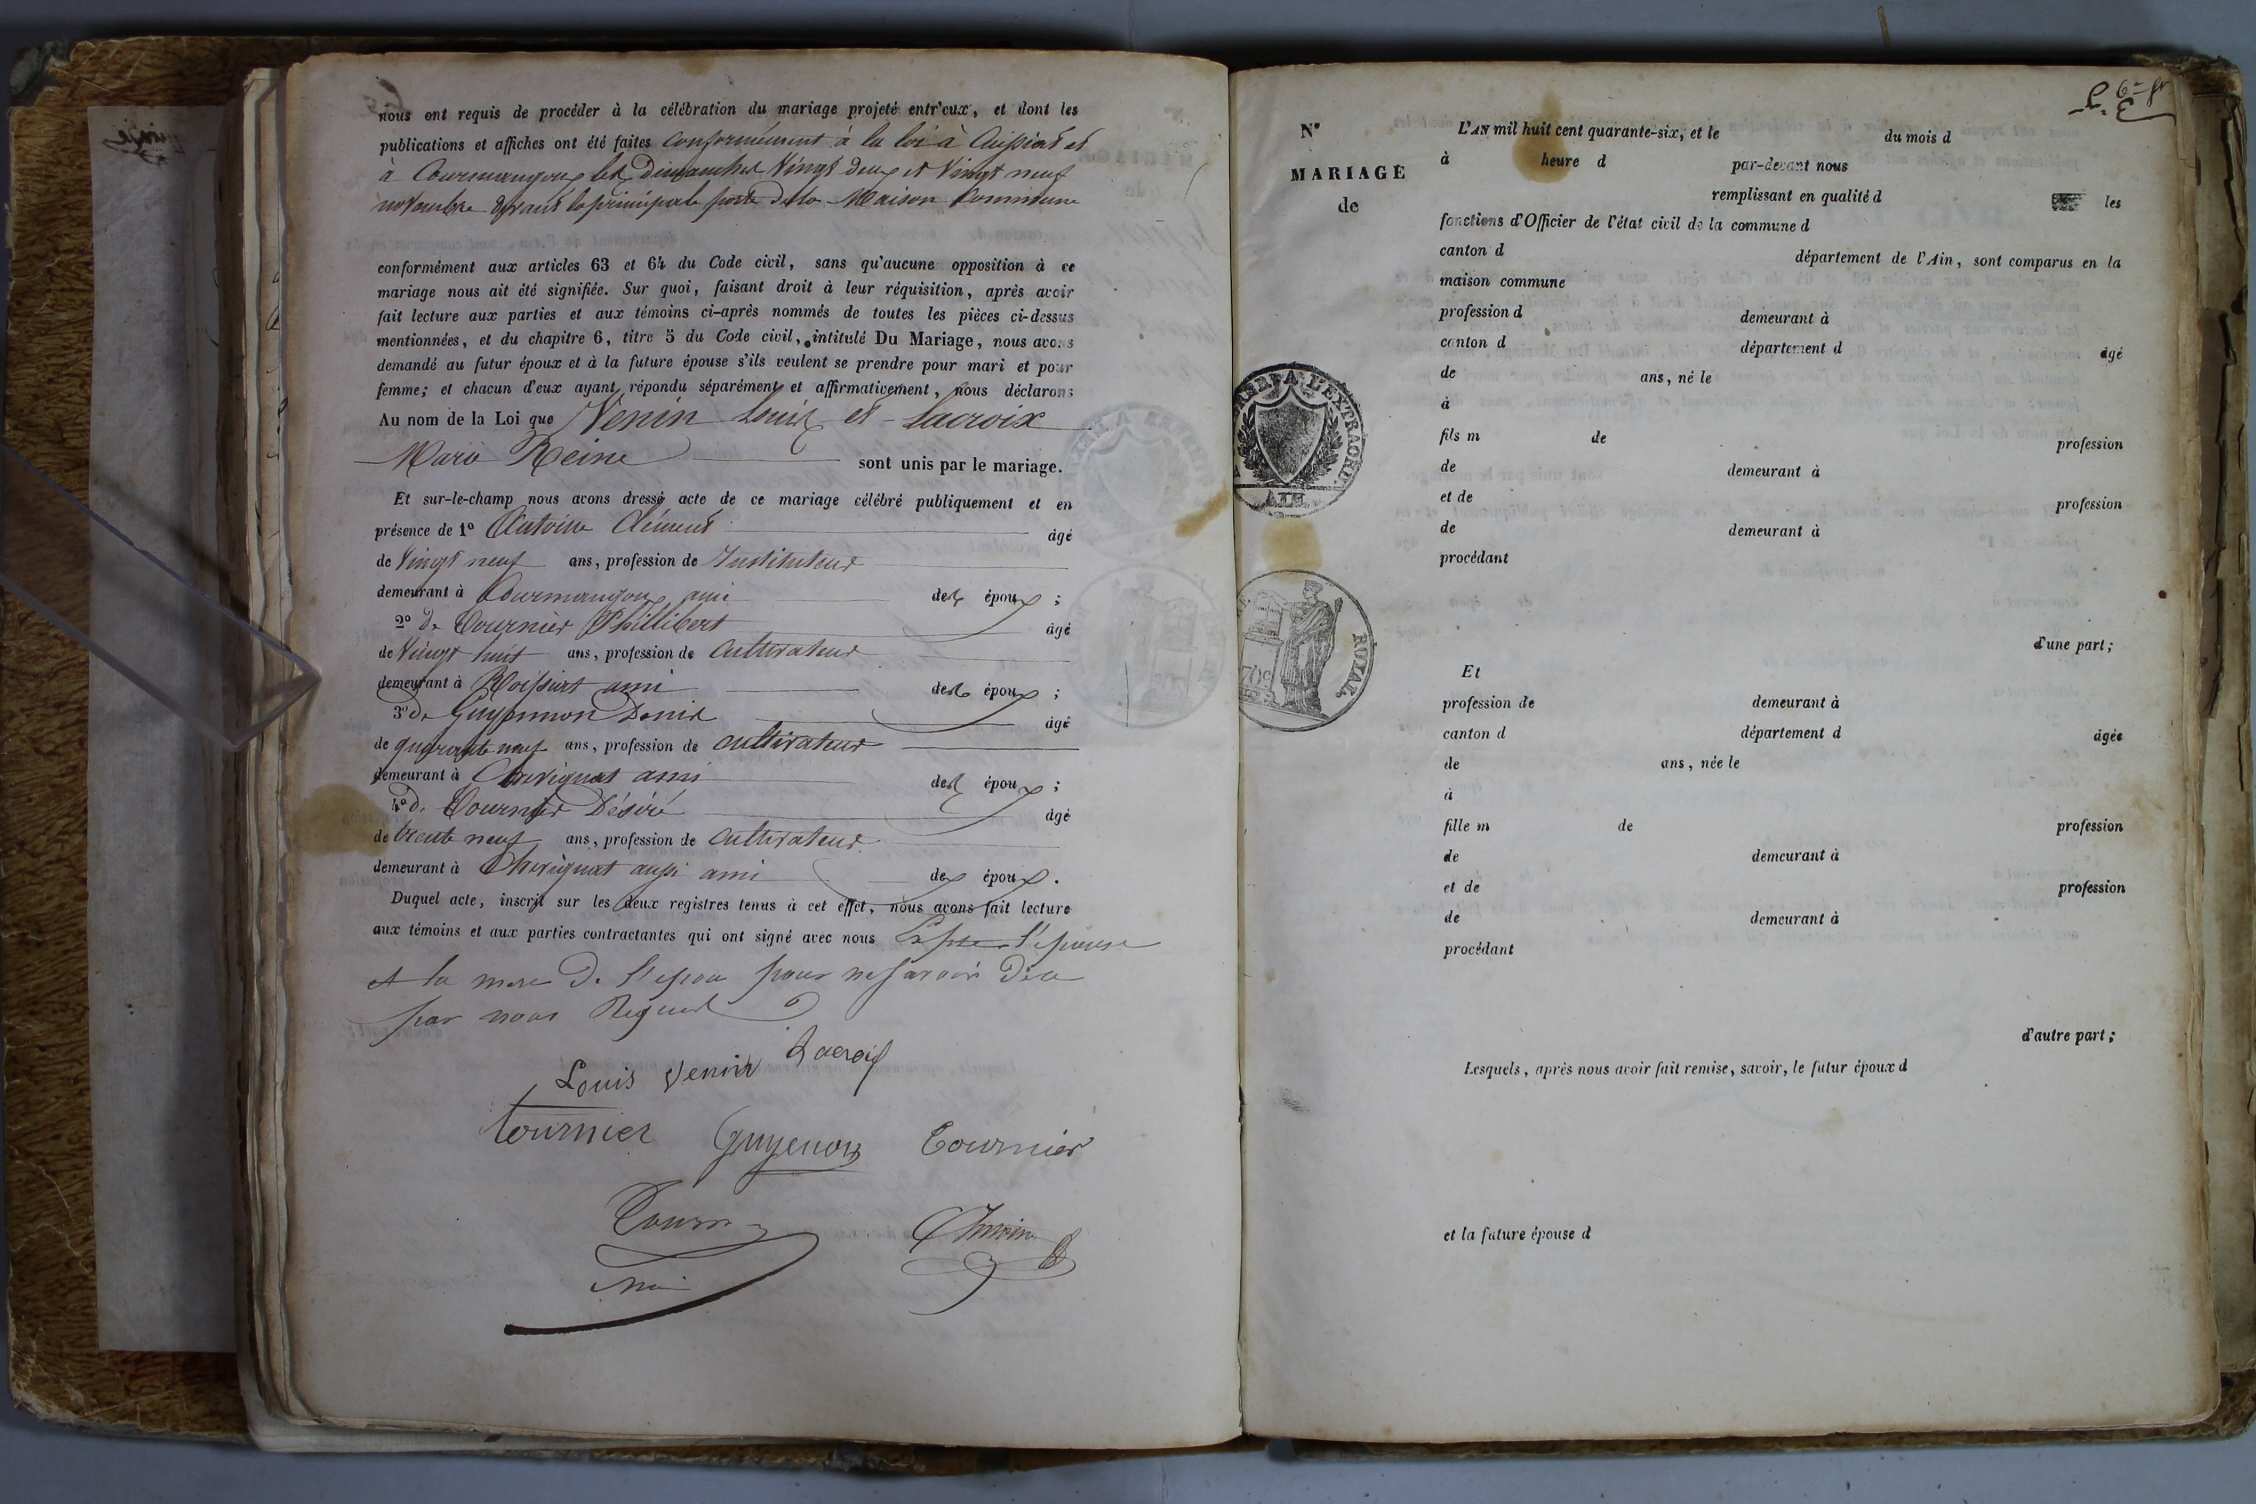 nous ont requis de procéder à la célébration du mariage projeté entr'eux, et dont les
publications et affiches ont été faites conformément à la loi à Aissiat et
à Courmangoux les Dimanches Vingt deux et Vingt neuf
novembre devant la principale porte de la Maison Commune
conformément aux articles 63 et 64 du Code civil, sans qu'aucune opposition à ce
mariage nous ait été signifiée. Sur quoi, faisant droit à leur réquisition, après avoir
fait lecture aux parties et aux témoins ci-après nommés de toutes les pièces ci-dessus
mentionnées, et du chapitre 6, titre 5 du Code civil, intitulé Du Mariage, nous avons
demandé au futur époux et à la future épouse s'ils veulent se prendre pour mari et pour
femme; et chacun d'eux ayant répondu séparément et affirmativement, nous déclarons
Au nom de la Loi que Venin Louis et Lacroix
Marie Reine sont unis par le mariage.
Et sur-le-champ nous avons dressé acte de ce mariage célébré publiquement et en
présence de 1º Antoine Clément âgé
de Vingt neuf ans, profession de Instituteur
demeurant à Courmangoux ami des époux ;
2º de Tournier Phillibert âgé
de Vingt huit ans, profession de Cultivateur
demeurant à Roissiat ami des époux ;
3º de Guyennon Denis âgé
de quarante neuf ans, profession de cultivateur
demeurant à Chevignat ami des époux ;
4º de Tournier Désiré âgé
de trente neuf ans, profession de Cultivateur
demeurant à Chevignat aussi ami des époux .
Duquel acte, inscrit sur les deux registres tenus à cet effet, nous avons fait lecture
aux témoins et aux parties contractantes qui ont signé avec nous l'épouse
et la mere de l'epou pour ne savoir De ce
par nous Requis
Louis Venin Lacroix
tournier Guyenon Tournier
Antoine
Nº
MARIAGE
de
L'AN mil huit cent quarante-six, et le du mois d
à heure d par-devant nous
remplissant en qualité d les
fonctions d'Officier de l'état civil de la commune d
canton d département de l'Ain, sont comparus en la
maison commune
profession d demeurant à
canton d département d âgé
de ans, né le
à
fils m de profession
de demeurant à
et de profession
de demeurant à
procédant
d'une part;
Et
profession de demeurant à
canton d département d âgée
de ans, née le
à
fille m de profession
de demeurant à
et de profession
de demeurant à
procédant
d'autre part;
Lesquels, après nous avoir fait remise, savoir, le futur époux d
et la future épouse d
TIMBRE A L'EXTRAORD.
AIN.
ROYAL.
70c